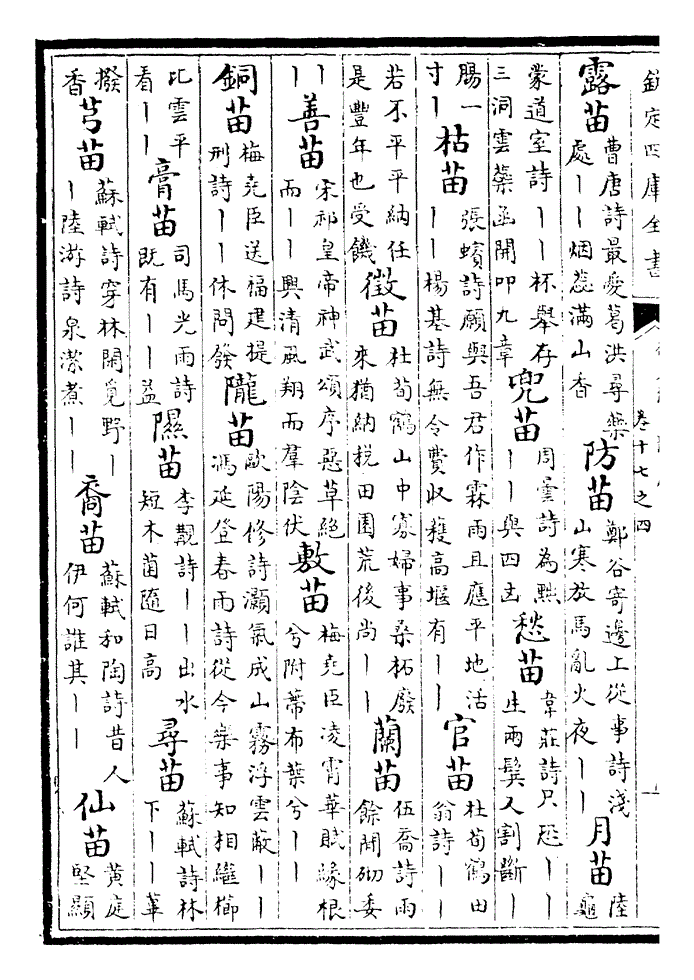 欽定四庫全書
卷十七之四
露苗
曹唐詩最愛葛洪尋藥
處丨丨烟蕊滿山香
防苗
鄭谷寄邊上從事詩淺
山寒放馬亂火夜丨丨
月苗
陸
龜
蒙道室詩丨丨杯舉存
三洞雲蘂函開叩九章
兜苗
周曇詩為黙
丨丨與四㐫
愁苗
韋莊詩只恐丨丨
生兩鬢又割斷丨
腸一
寸丨
枯苗
張蠙詩願與吾君作霖雨且應平地活
丨丨楊基詩無令費收穫高堰有丨丨
官苗
杜荀鶴田
翁詩丨丨
若不平平納任
是豐年也受饑
徵苗
杜荀鶴山中寡婦事桑柘廢
來猶納税田園荒後尚丨丨
蘭苗
伍喬詩雨
餘閒砌委
丨
丨丨
善苗
宋祁皇帝神武頌序惡草絶
而丨丨興清風翔而羣陰伏
敷苗
梅堯臣凌霄華賦緣根
兮附蔕布葉兮丨丨
銅苗
梅堯臣送福建提
刑詩丨丨休問發
隴苗
歐陽修詩灝氣成山霧浮雲蔽丨丨
馮延登春雨詩從今樂事知相繼櫛
比雲平
看丨丨
膏苗
司馬光雨詩
既有丨丨益
隰苗
李覯詩丨丨出水
短木菌隨日高
尋苗
蘇軾詩林
下丨丨蓽
撥
香
芎苗
蘇軾詩穿林閒覓野丨
丨陸游詩泉潔煮丨丨
裔苗
蘇軾和陶詩昔人
伊何誰其丨丨
仙苗
黃庭
堅顯